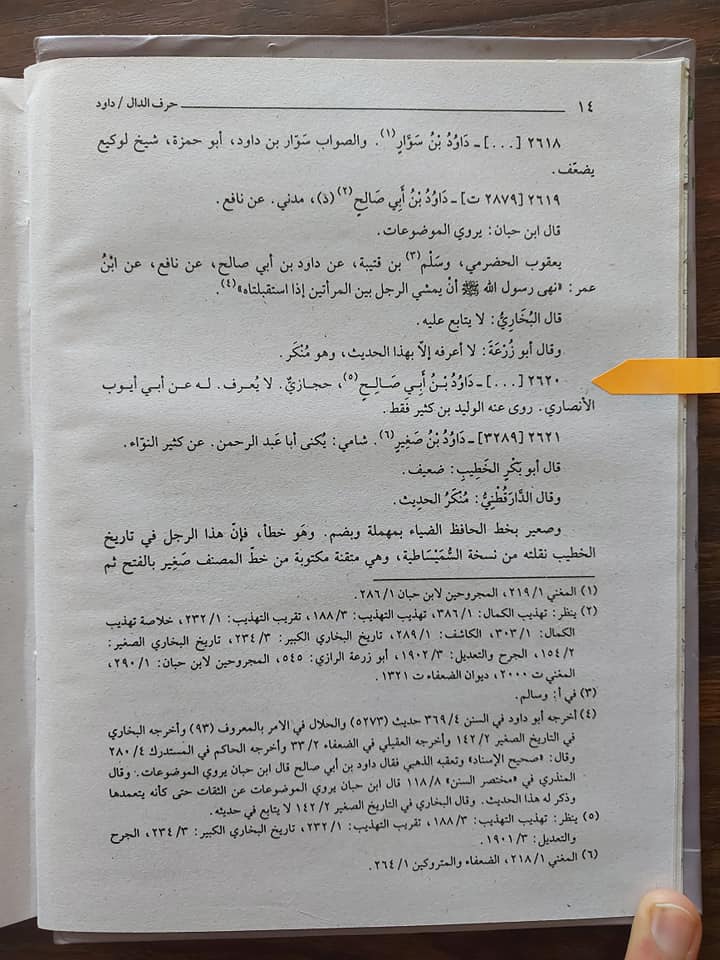 ١٤ حرف الدال / داود
٢٦١٨ [...] ـ دَاوُدُ بْنُ سَوَّارٍ(١). والصواب سَوّار بن داود، أبو حمزة، شيخ لوكيع
يضعّف.
٢٦١٩ [٢٨٧٩ ت] ـ دَاوُدُ بْنُ أَبِي صَالِحٍ(٢) (د)، مدني. عن نافع.
قال ابن حبان: يروي الموضوعات.
يعقوب الحضرمي، وسَلْم(٣) بن قتيبة، عن داود بن أبي صالح، عن نافع، عن ابْنُ
عمر: «نهى رسول الله ﷺ أنْ يمشي الرجل بين المرأتين إذا استقبلتاه»(٤).
قال البُخَارِيُّ: لا يتابع عليه.
وقال أبو زُرْعَةَ: لا أعرفه إلاّ بهذا الحديث، وهو مُنْكَر.
٢٦٢٠ [...] ـ دَاوُدُ بْنُ أَبِي صَالِحٍ(٥)، حجازيٌّ. لا يُعرف. له عن أبي أيوب
الأنصاري. روى عنه الوليد بن كثير فَقط.
٢٦٢١ [٣٢٨٩] ـ دَاوُدُ بْنُ صَغِيرٍ(٦). شامي: يُكنى أبا عَبد الرحمن. عن كثير النوّاء.
قال أبو بَكْرٍ الخَطِيبِ: ضعيف.
وقال الدَّارَقُطْنِيُّ: مُنْكَرُ الحدِيث.
وصعير بخط الحافظ الضياء بمهملة وبضم. وهَو خطأ، فإنّ هذا الرجل في تاريخ
الخطيب نقلته من نسخة السُّمَيْسَاطية، وهي متقنة مكتوبة من خطّ المصنف صَغِير بالفتح ثم
(١) المغني ٢١٩/١، المجروحين لابن حبان ٢٨٦/١.
(٢) ينظر: تهذيب الكمال: ٣٨٦/١، تهذيب التهذيب: ١٨٨/٣، تقريب التهذيب: ٢٣٢/١، خلاصة تهذيب
الكمال: ٣٠٣/١، الكاشف: ٢٨٩/١، تاريخ البخاري الكبير: ٢٣٤/٣، تاريخ البخاري الصغير:
١٥٤/٢، الجرح والتعديل: ١٩٠٢/٣، أبو زرعة الرازي: ٥٤٥، المجروحين لابن حبان: ٢٩٠/١،
المغني ت ٢٠٠٠، ديوان الضعفاء ت ١٣٢١.
(٣) في أ: وسالم.
(٤) أخرجه أبو داود في السنن ٣٦٩/٤ حديث (٥٢٧٣) والحلال في الامر بالمعروف (٩٣) وأخرجه البخاري
في التاريخ الصغير ١٤٢/٢ وأخرجه العقيلي في الضعفاء ٣٣/٢ وأخرجه الحاكم في المستدرك ٢٨٠/٤
وقال: «صحيح الإسناد» وتعقبه الذهبي فقال داود بن أبي صالح قال ابن حبان يروي الموضوعات. وقال
المنذري في «مختصر السنن» ١١٨/٨ قال ابن حبان يروي الموضوعات عن الثقات حتى كأنه يتعمدها
وذكر له هذا الحديث. وقال البخاري في التاريخ الصغير ١٤٢/٢ لا يتابع في حديثه.
(٥) ينظر: تهذيب التهذيب: ١٨٨/٣، تقريب التهذيب: ٢٣٢/١، تاريخ البخاري الكبير: ٢٣٤/٣، الجرح
والتعديل: ١٩٠١/٣.
(٦) المغني ٢١٨/١، الضعفاء والمتروكين ٢٦٤/١.